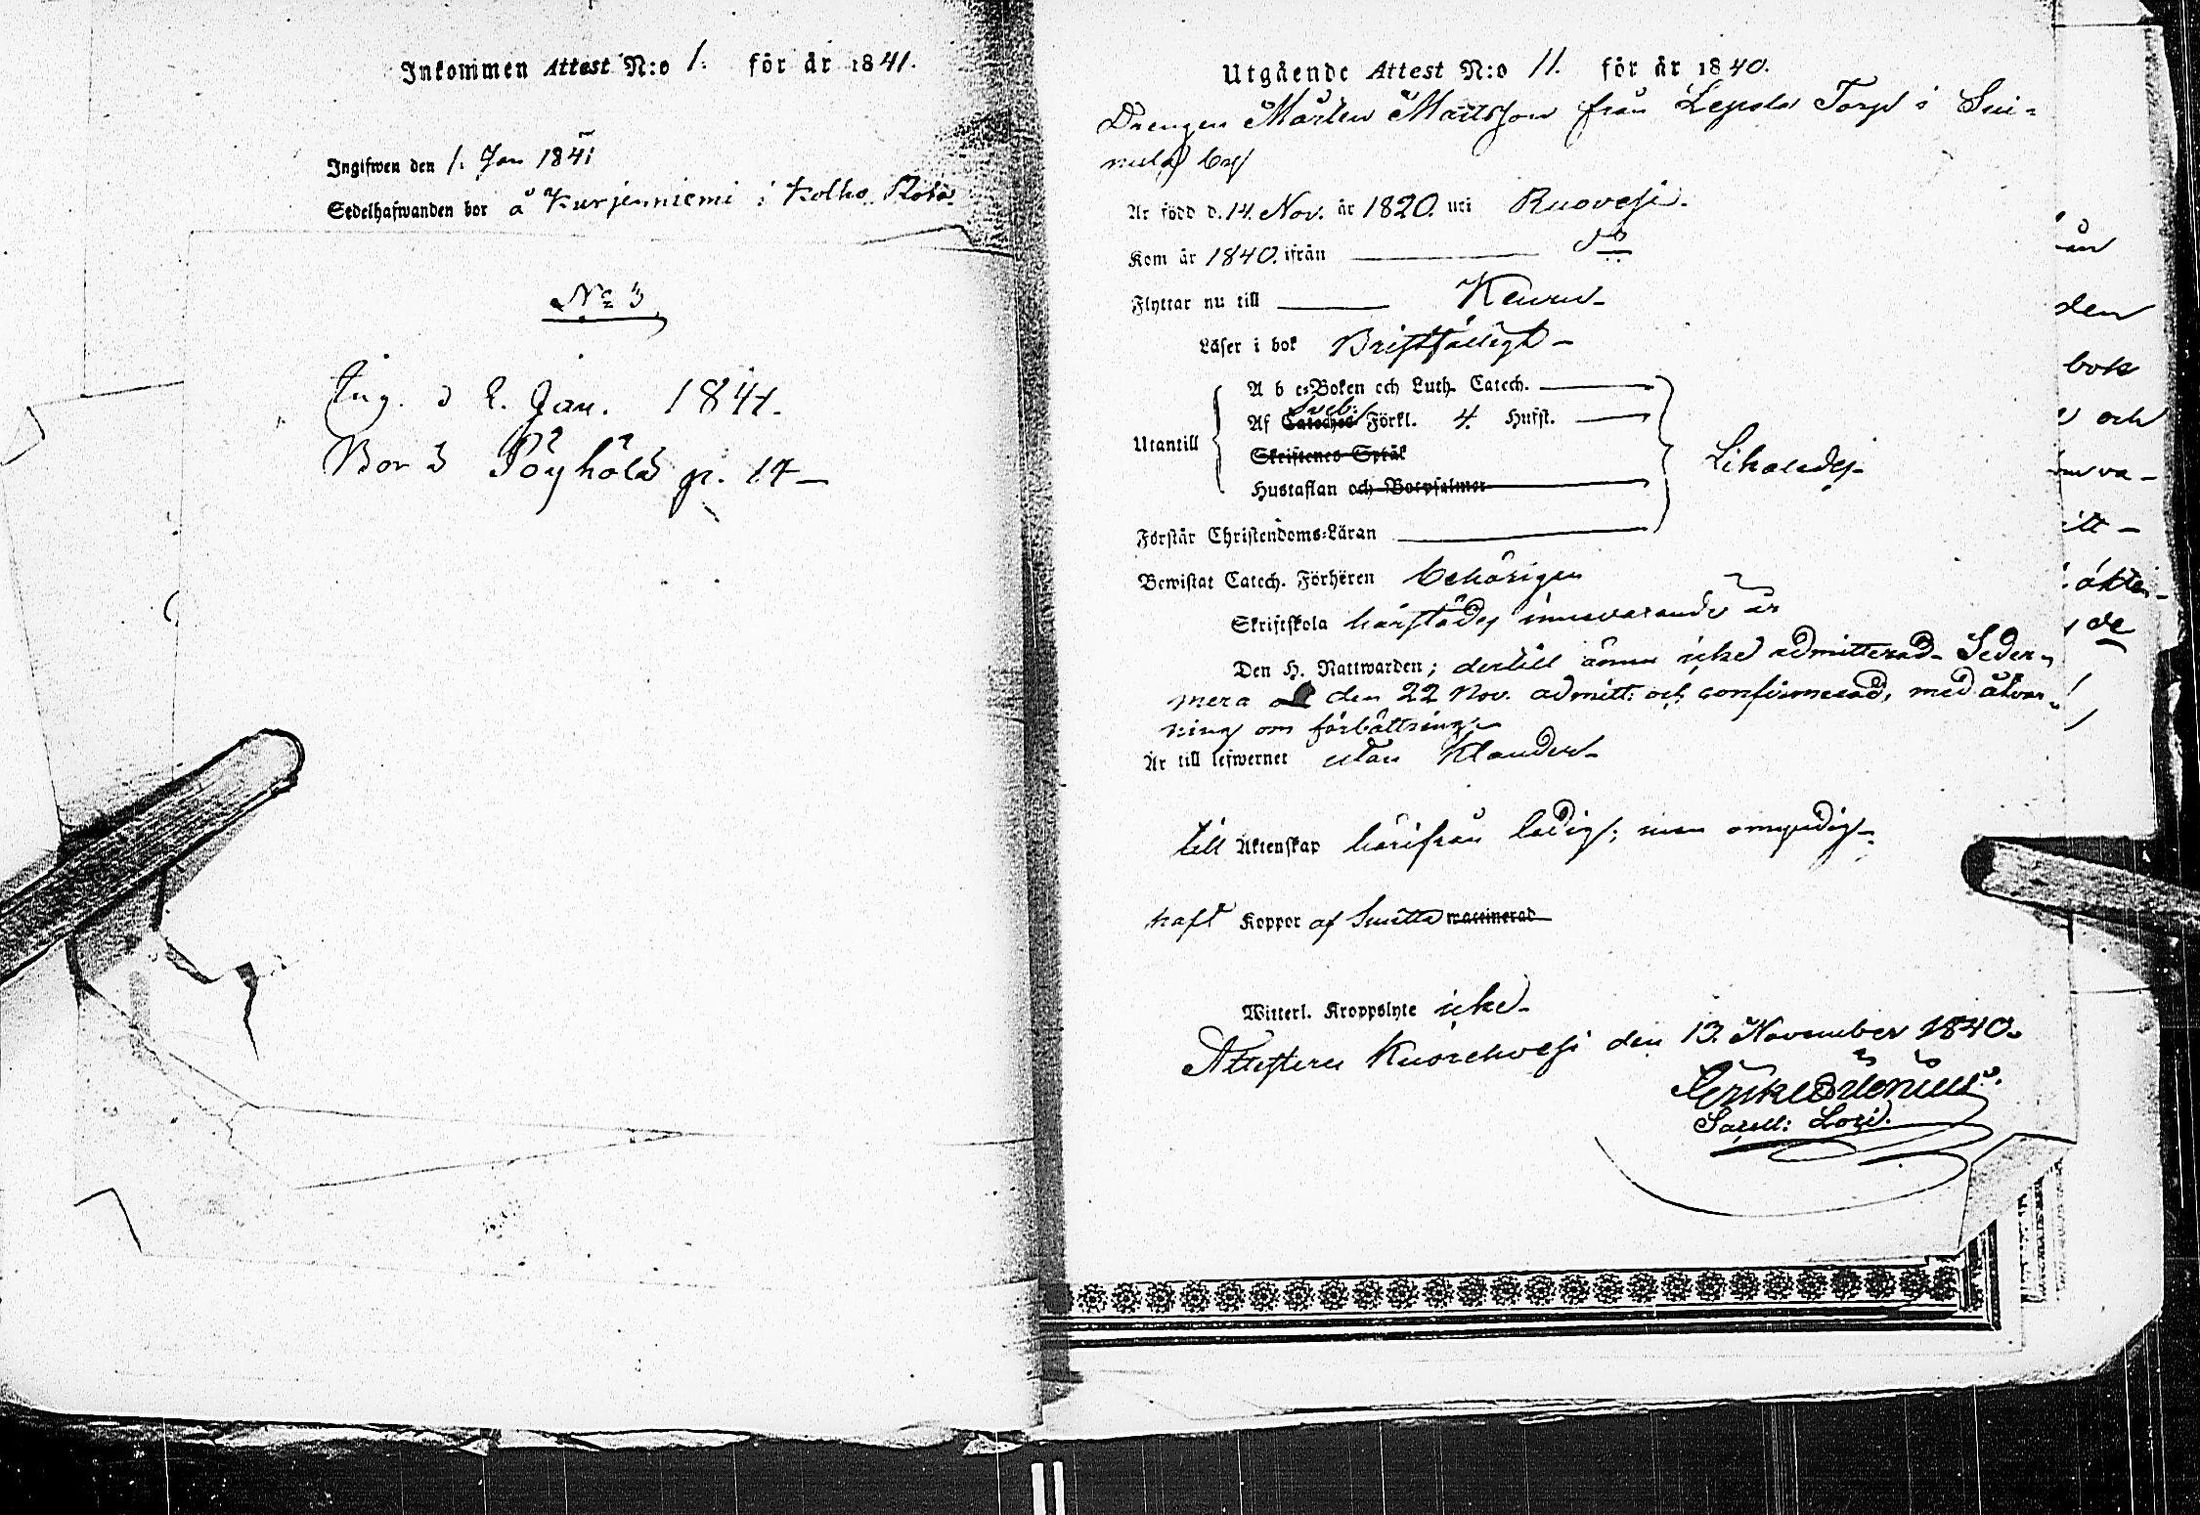 Inkommen Attest N:o 1. för år 1841.
Ingifwen den 1. Jan 1841
Sedelhafwanden bor å Kurjenniemi i Kolho Rote.
No 3
Ing. d 2. Jan. 1841.
Bor å Pöyhölä p. 17
Utgående Attest N:o 11. för år 1840.
Drengen Mårten Mårtsson från Lepola Torp i Sui-
nula by
Är född d. 14. Nov. år 1820. uti Ruovesi.
Kom år 1840. ifrån do
Flyttar nu till Keuru
Läser i bok Bristfälligt
A b c-Boken och Luth. Catech.
Sveb:
Af Cateches Förkl. 4. Hufst.
Utantill
Skriftenes Språk
Likaledes
Hustaflan och Botpsalmer
Förstår Christendoms-Läran
Bewistat Catech. Förhören behörigen
Skriftskola härstädes innevarande år
Den H. Nattwarden; dertill ännu icke admitterad. Seder-
mera den 22 Nov. admitt: och confirmerad, med åtvar-
ning om förbättring
Är till lefwernet utan Klander
till Äktenskap härifrån ledig; men
haft Koppor af Smitta waccinerad
Witterl. Kroppslyte icke
Attesteras Kuorehvesi den 13. November 1840.
Sacell:
ån
den
bok
och
va-
itt
de